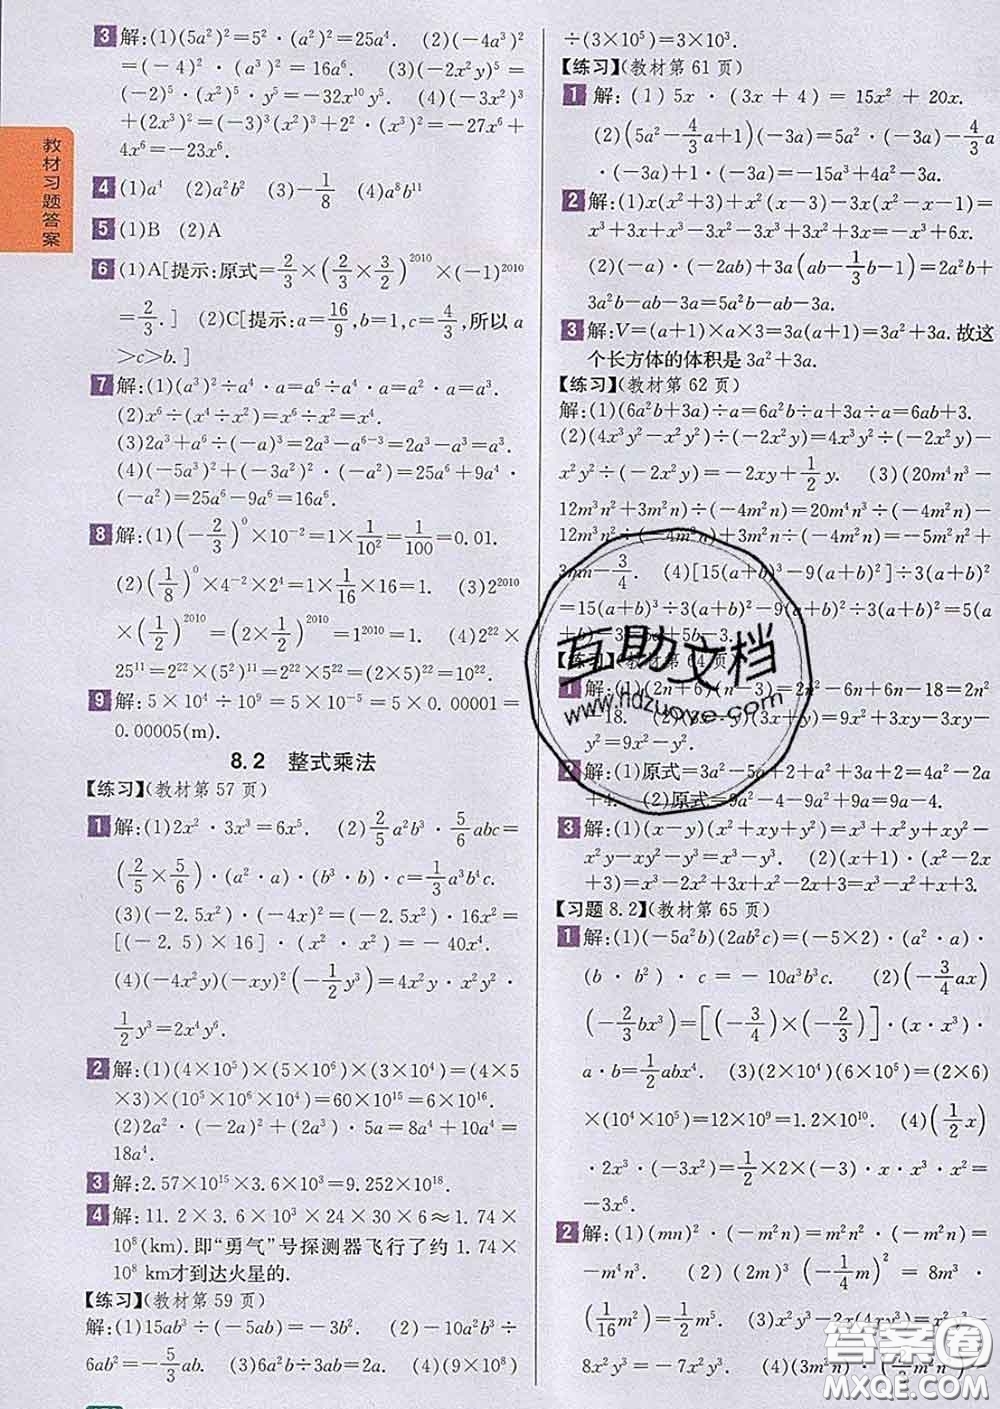 教材习题答案
3 解:(1)(5a²)²=5²·(a²)²=25a⁴. (2)(−4a³)²
=(−4)²·(a³)²=16a⁶. (3)(−2x²y)⁵=
(−2)⁵·(x²)⁵·y⁵=−32x¹⁰y⁵. (4)(−3x²)³
+(2x³)²=(−3)³(x²)³+2²·(x³)²=−27x⁶+
4x⁶=−23x⁶.
4 (1)a⁴ (2)a²b² (3)−1/8 (4)a⁸b¹¹
5 (1)B (2)A
6 (1)A[提示:原式=2/3×(2/3×3/2)²⁰¹⁰×(−1)²⁰¹⁰
=2/3.] (2)C[提示:a=16/9,b=1,c=4/3,所以a
>c>b.]
7 解:(1)(a³)²÷a⁴·a=a⁶÷a⁴·a=a²·a=a³.
(2)x⁶÷(x⁴÷x²)=x⁶÷x²=x⁴.
(3)2a³+a⁶÷(−a)³=2a³−a⁶⁻³=2a³−a³=a³.
(4)(−5a³)²+(−3a²)²·(−a²)=25a⁶+9a⁴·
(−a²)=25a⁶−9a⁶=16a⁶.
8 解:(1)(−2/3)⁰×10⁻²=1×1/10²=1/100=0.01.
(2)(1/8)⁰×4⁻²×2⁴=1×1/16×16=1. (3)2²⁰¹⁰
×(1/2)²⁰¹⁰=(2×1/2)²⁰¹⁰=1²⁰¹⁰=1. (4)2²²×
25¹¹=2²²×(5²)¹¹=2²²×5²²=(2×5)²²=10²².
9 解:5×10⁴÷10⁹=5×10⁻⁵=5×0.00001=
0.00005(m).
8.2 整式乘法
【练习】(教材第57页)
1 解:(1)2x²·3x³=6x⁵. (2)2/5a²b³·5/6abc=
(2/5×5/6)·(a²·a)·(b³·b)·c=1/3a³b⁴c.
(3)(−2.5x²)·(−4x)²=(−2.5x²)·16x²=
[(−2.5)×16]·(x²·x²)=−40x⁴.
(4)(−4x²y)(−xy)²(−1/2y³)=4x²y·x²y²·
1/2y³=2x⁴y⁶.
2 解:(1)(4×10⁵)×(5×10⁶)×(3×10⁴)=(4×5
×3)×(10⁵×10⁶×10⁴)=60×10¹⁵=6×10¹⁶.
(2)2a²·(−2a)²+(2a³)·5a=8a⁴+10a⁴=
18a⁴.
3 解:2.57×10¹⁵×3.6×10³=9.252×10¹⁸.
4 解:11.2×3.6×10³×24×30×6≈1.74×
10⁸(km).即“勇气”号探测器飞行了约1.74×
10⁸ km才到达火星的.
【练习】(教材第59页)
解:(1)15ab³÷(−5ab)=−3b². (2)−10a²b³÷
6ab²=−5/3ab. (3)6a²b÷3ab=2a. (4)(9×10⁸)
÷(3×10⁵)=3×10³.
【练习】(教材第61页)
1 解:(1)5x·(3x+4)=15x²+20x.
(2)(5a²−4/3a+1)(−3a)=5a²·(−3a)−4/3a
·(−3a)+1·(−3a)=−15a³+4a²−3a.
2 解:(1)x(x²+3)+x²(x−3)−3x(x²−x−1)=
x³+3x+x³−3x²−3x³+3x²+3x=−x³+6x.
(2)(−a)·(−2ab)+3a(ab−1/3b−1)=2a²b+
3a²b−ab−3a=5a²b−ab−3a.
3 解:V=(a+1)×a×3=3a(a+1)=3a²+3a.故这
个长方体的体积是3a²+3a.
【练习】(教材第62页)
解:(1)(6a²b+3a)÷a=6a²b÷a+3a÷a=6ab+3.
(2)(4x³y²−x²y²)÷(−2x²y)=4x³y²÷(−2x²y)−
x²y²÷(−2x²y)=−2xy+1/2y. (3)(20m⁴n³−
12m³n²+3m²n)÷(−4m²n)=20m⁴n³÷(−4m²n)−
12m³n²÷(−4m²n)+3m²n÷(−4m²n)=−5m²n²+
3mn−3/4. (4)[15(a+b)³−9(a+b)²]÷3(a+b)²
=15(a+b)³÷3(a+b)²−9(a+b)²÷3(a+b)²=5(a+
b)−3=5a+5b−3.
【练习】(教材第64页)
1 解:(1)(2n+6)(n−3)=2n²−6n+6n−18=2n²
−18. (2)(3x−y)(3x+y)=9x²+3xy−3xy−
y²=9x²−y².
2 解:(1)原式=3a²−5a+2+a²+4a−2a
+4. (2)原式=9a²−4−9a²+9a=9a−4.
3 解:(1)(x−y)(x²+xy+y²)=x³+x²y+xy²−
x²y−xy²−y³=x³−y³. (2)(x+1)·(x²−2x
+3)=x³−2x²+3x+x²−2x+3=x³−x²+x+3.
【习题8.2】(教材第65页)
1 解:(1)(−5a²b)(2ab²c)=(−5×2)·(a²·a)·
(b·b²)·c=−10a³b³c. (2)(−3/4ax)
(−2/3bx³)=[(−3/4)×(−2/3)]·(x·x³)·
a·b=1/2abx⁴. (3)(2×10⁴)(6×10⁵)=(2×6)
×(10⁴×10⁵)=12×10⁹=1.2×10¹⁰. (4)(1/2x)
·2x³·(−3x²)=1/2×2×(−3)·x·x³·x²=
−3x⁶.
2 解:(1)(mn)²·(−m²n)=m²n²·(−m²n)=
−m⁴n³. (2)(2m)³·(−1/4m)²=8m³·
(1/16m²)=1/2m⁵. (3)x³y²·x−2x(4xy²)=
8x²y²=−7x²y². (4)(3m²n)
互助文档
www.hdzuoye.com
答案圈
MXQE.COM